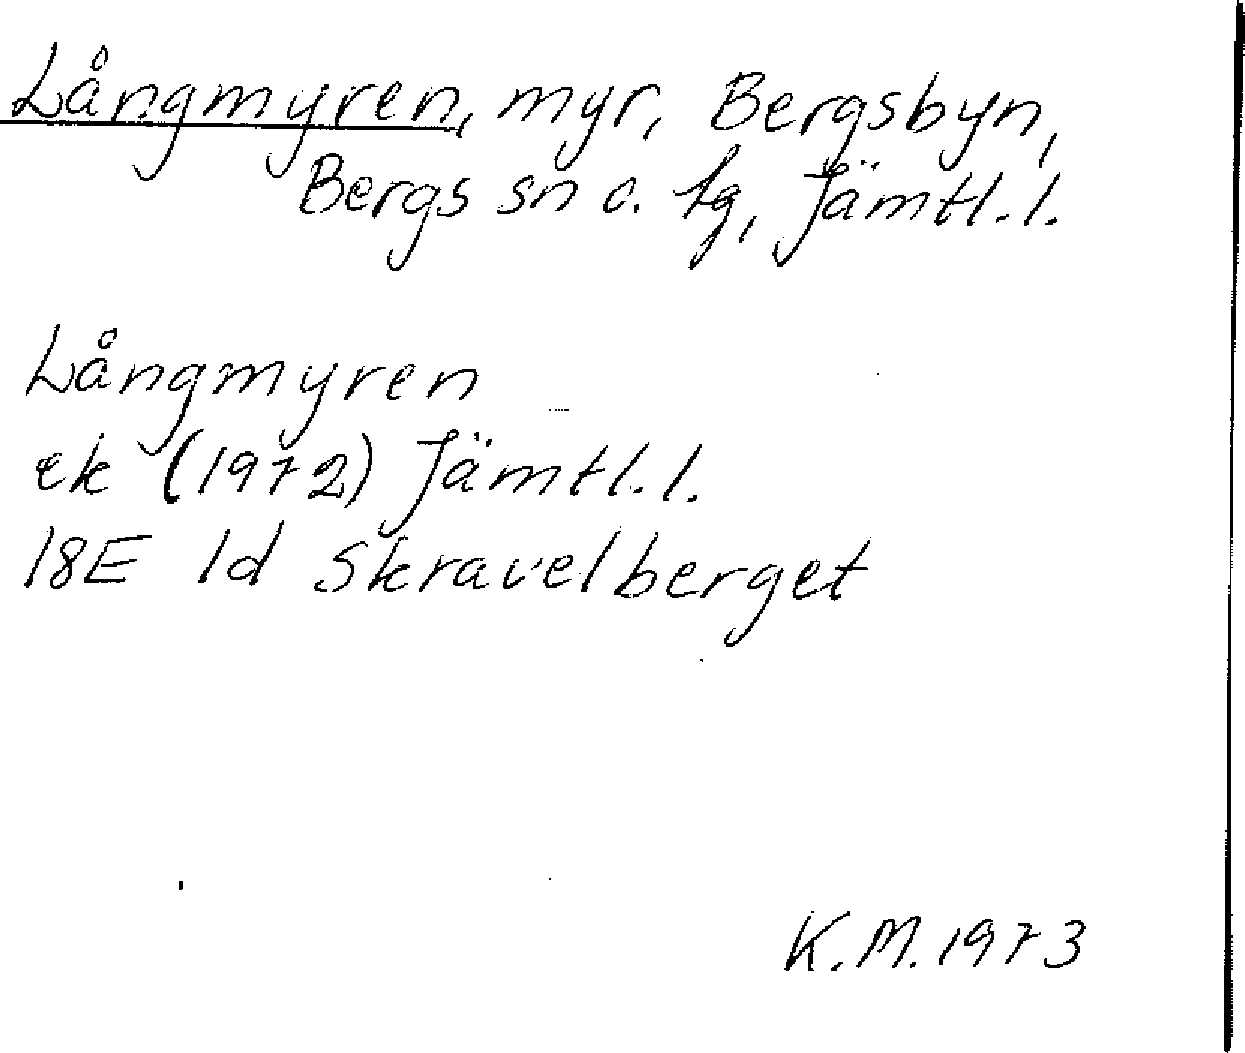 Långmyren, myr, Bergsbyn,
Bergs sn o. tg, Jämtl. l.
Långmyren
ek (1972) Jämtl. l.
18E 1d Skravelberget
K.M. 1973